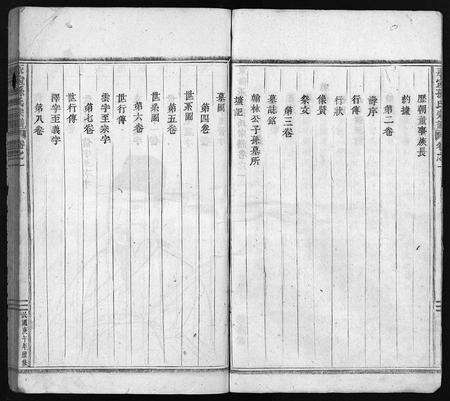 歷朝董事族長
約據
第二卷
詩序
行傳
行狀
像賛
祭文
第三卷
墓誌銘
翰林公子孫墓所
墳記
墓圖
第四卷
世系圖
第五卷
世系圖
第六卷
世行傳
字至宗字
第七卷
世行傳
澤字至義字
第八卷